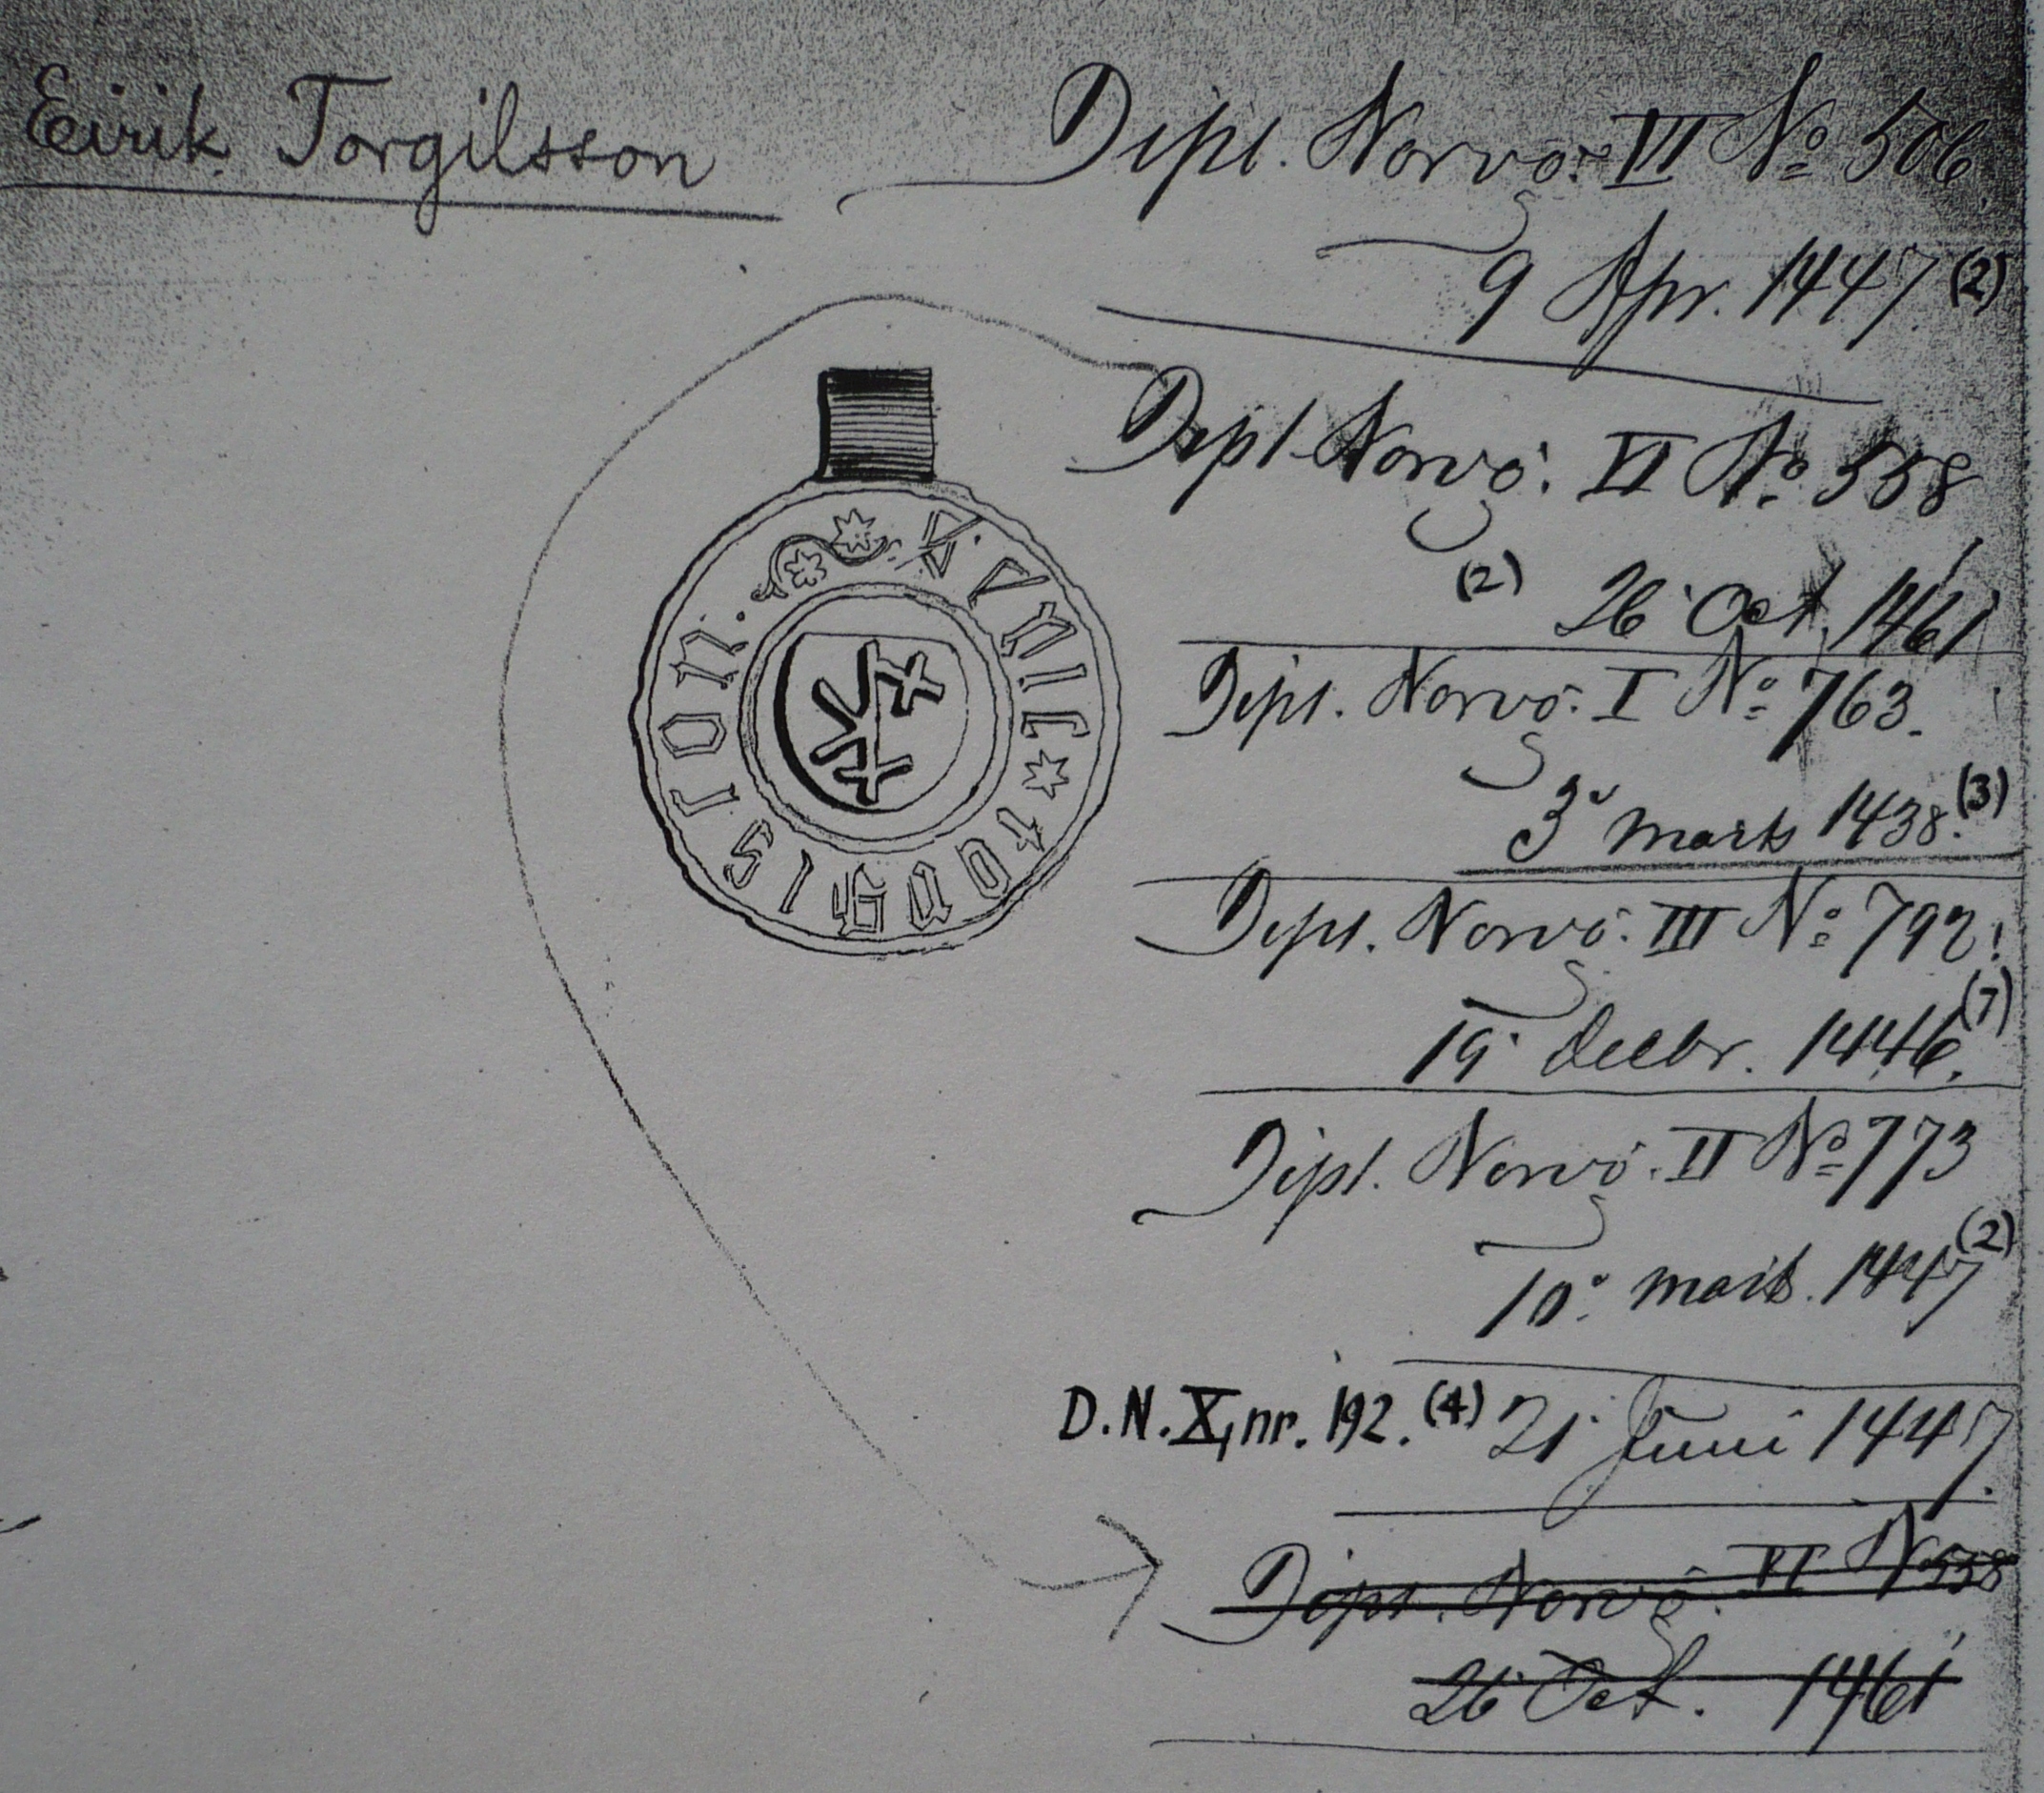 Eirik Torgilsson
Dipl. Norvg: VI No 506.
9 Apr. 1447 (2)
Dipl Norvg: VI No 558
(2) 26 Oct. 1461
Dipl. Norvg. I No 763.
3 marts 1438. (3)
Dipl. Norvg: III No 792!
19 Decbr. 1446. (7)
Dipl. Norvg. II No 773
10 marts. 1447 (2)
D.N. X, nr. 192. (4) 21 Juni 1447.
Dipl. Norvg. VI No 558
26 Oct. 1461